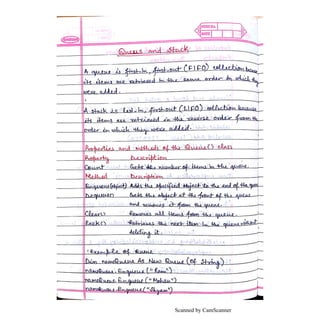 Queues and Stack
A queue is first-in, first-out (FIFO) collection because
its items are retrieved in the same order in which they
were added.
A stack is last-in, first-out (LIFO) collection because
its items are retrieved in the reverse order from the
order in which they were added.
Properties and methods of the Queue() class
Property Description
Count Gets the number of items in the queue.
Method Description
Enqueue(object) Adds the specified object to the end of the queue
Dequeue() Gets the object at the front of the queue
and removes it from the queue.
Clear() Removes all items from the queue.
Peek() Retrieves the next item in the queue without
deleting it.
Example of Queue
Dim nameQueue As New Queue (Of String)
nameQueue.Enqueue ("Ram")
nameQueue.Enqueue ("Mohan")
nameQueue.Enqueue ("Shyam")
Scanned by CamScanner